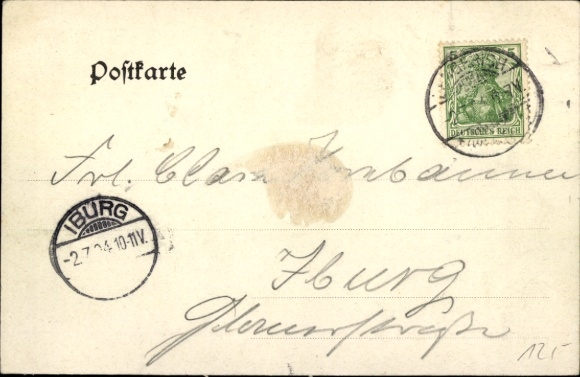 Postkarte
5 5
DEUTSCHES REICH
Frl. Clara
IBURG
-2.7.04.10-11V.
Iburg
125